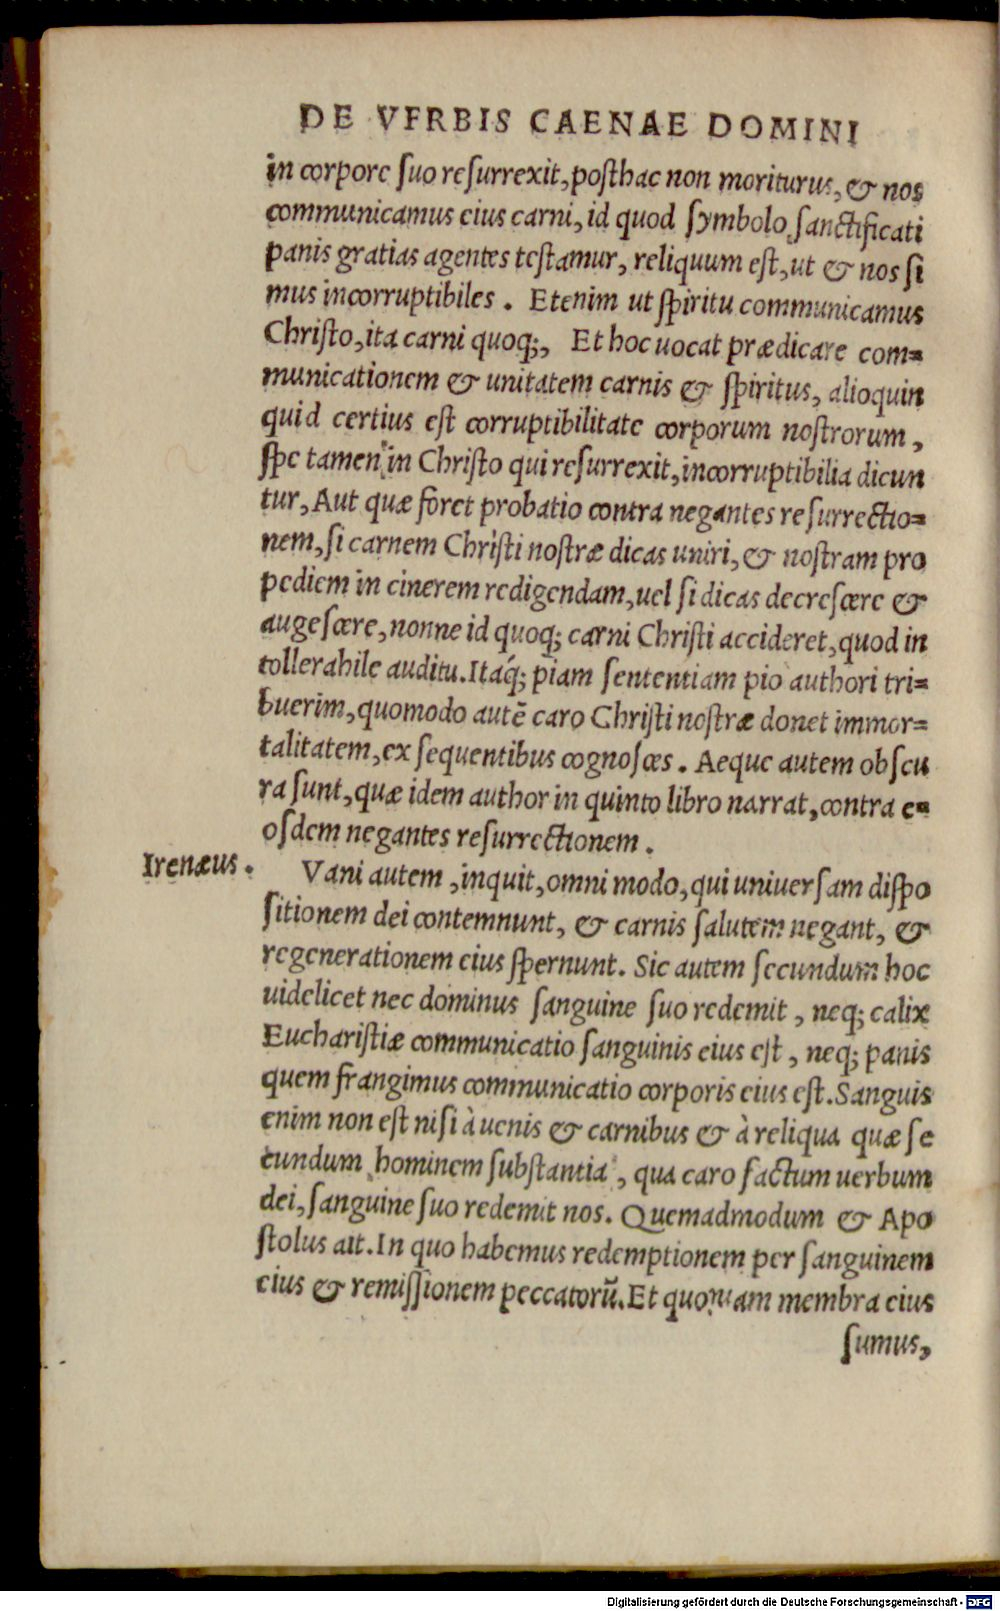 DE VERBIS CAENAE DOMINI
in corpore ſuo reſurrexit, poſthac non moriturus, & nos
communicamus eius carni, id quod ſymbolo ſanctificati
panis gratias agentes teſtamur, reliquum eſt, ut & nos ſi
mus incorruptibiles. Etenim ut ſpiritu communicamus
Chriſto, ita carni quoq;, Et hoc uocat prædicare com=
municationem & unitatem carnis & ſpiritus, alioquin
quid certius eſt corruptibilitate corporum noſtrorum,
ſpe tamen in Chriſto qui reſurrexit, incorruptibilia dicun
tur, Aut quæ foret probatio contra negantes reſurrectio=
nem, ſi carnem Chriſti noſtræ dicas uniri, & noſtram pro
pediem in cinerem redigendam, uel ſi dicas decreſcere &
augeſcere, nonne id quoq; carni Chriſti accideret, quod in
tollerabile auditu. Itaq́; piam ſententiam pio authori tri=
buerim, quomodo autē caro Chriſti noſtræ donet immor=
talitatem, ex ſequentibus cognoſces. Aeque autem obſcu
ra ſunt, quæ idem author in quinto libro narrat, contra e=
oſdem negantes reſurrectionem.
Irenæus.
Vani autem, inquit, omni modo, qui uniuerſam diſpo
ſitionem dei contemnunt, & carnis ſalutem negant, &
regenerationem eius ſpernunt. Sic autem ſecundum hoc
uidelicet nec dominus ſanguine ſuo redemit, neq; calix
Euchariſtiæ communicatio ſanguinis eius eſt, neq; panis
quem frangimus communicatio corporis eius eſt. Sanguis
enim non eſt niſi à uenis & carnibus & à reliqua quæ ſe
cundum hominem ſubſtantia, qua caro factum uerbum
dei, ſanguine ſuo redemit nos. Quemadmodum & Apo
ſtolus ait. In quo habemus redemptionem per ſanguinem
eius & remiſſionem peccatorū. Et quoniam membra eius
ſumus,
Digitalisierung gefördert durch die Deutsche Forschungsgemeinschaft - DFG